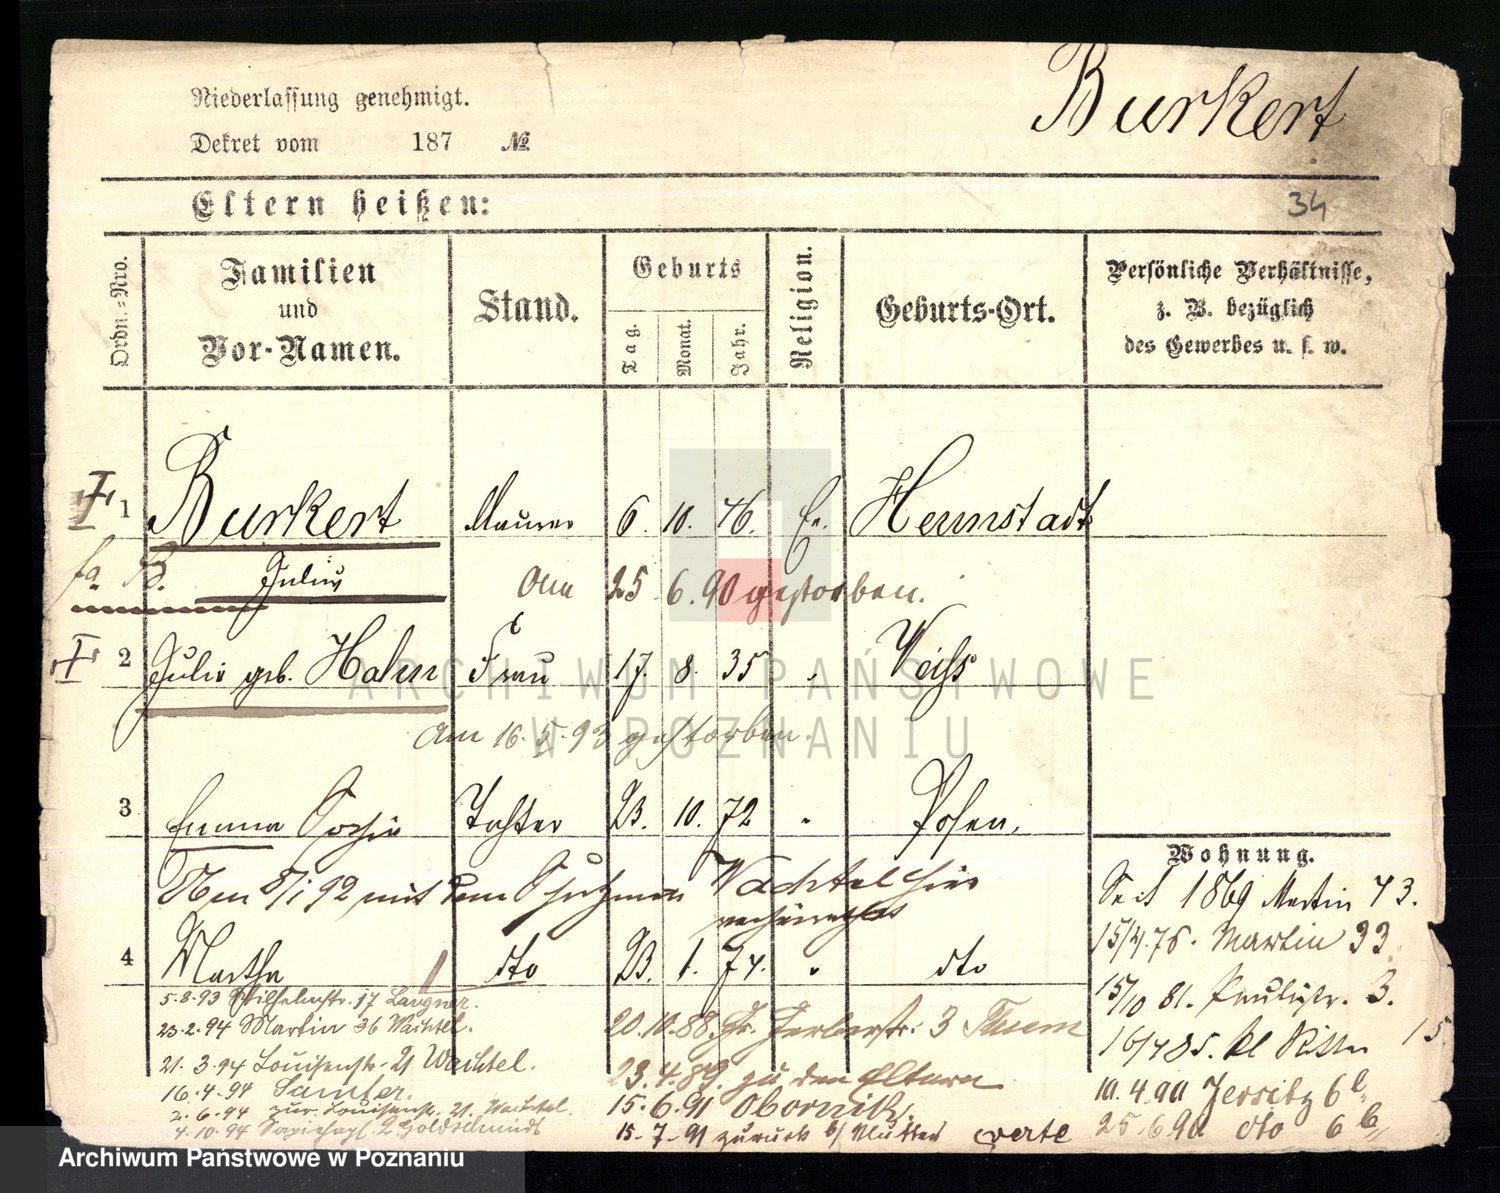 Burkert
Niederlassung genehmigt.
Dekret vom 187 №
Eltern heißen:
34
Ordn.-Nro.
Familien
und
Vor-Namen.
Stand.
Geburts
Tag.
Monat.
Jahr.
Religion.
Geburts-Ort.
Persönliche Verhältnisse,
z. B. bezüglich
des Gewerbes u. s. w.
1 Burkert Maurer 6. 10. 46. Ev. Herrnstadt
Julius Am 25 6. 90 gestorben.
2 Julie geb. Hahn Frau 17. 8. 35 " Weiss
Am 16. 5. 93 gestorben.
3 Emma Sophie Tochter 23. 10. 72 " Posen.
Am 5/1 92 mit dem Schutzmann Wachtel hier
verheirathet
4 Martha dto 23. 1. 74. " dto
5.8.93 Wilhelmstr. 17 Langner.
23.2.94 Martin 36 Wachtel.
21.3.94 Louisenstr. 21 Wachtel.
16.4.94 Samter.
2.6.94 zur. Louisenstr. 21. Wachtel.
4.10.94 Sapiehapl. 2 Goldschmidt
20.10.88. Gr. Gerberstr. 3
23.4.89. zu den Eltern
15.6.91 Obornik.
15.7.91 zurück b/ Mutter verte
Wohnung.
Seit 1869 Martin 73.
15/4.76. Martin 33.
15/10 81. Paulistr. 3.
16/4 85. kl Ritter 15
10.4.90 Jersitz 6b
25.6.90 dto 6b
ARCHIWUM PAŃSTWOWE
W POZNANIU
Archiwum Państwowe w Poznaniu